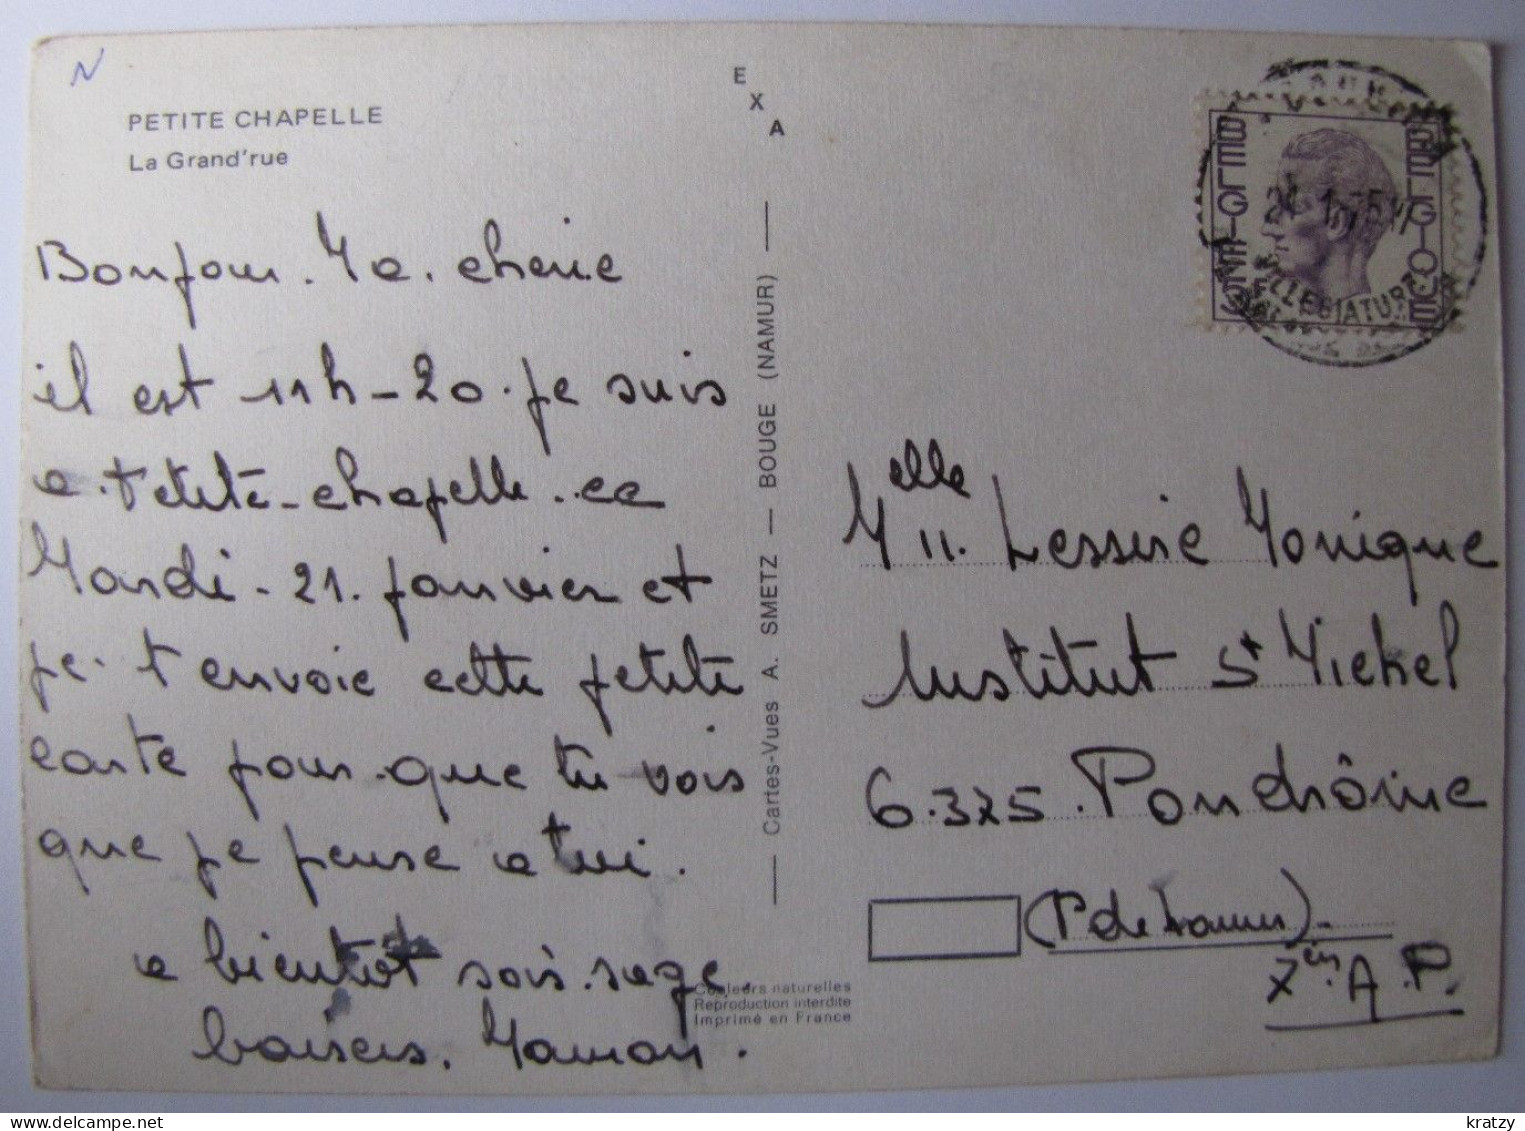 N
PETITE CHAPELLE
La Grand'rue
Bonjour. Ma. cherie
il est 11h-20. je suis
a. Petite-chapelle. ce
Mardi - 21. janvier et
je. t'envoie cette petite
carte pour. que tu vois
que je pense a tui.
a bientot sois. sage.
baisers. Maman.
E
X
A
Cartes-Vues A. SMETZ — BOUGE (NAMUR)
Couleurs naturelles
Reproduction interdite
Imprimé en France
BELGIQUE
BELGIË
VILLEGIATURE
Melle
Lessire Monique
Institut St Michel
6.325. Pondrôme
(P de Namur).
A. P.
kratzy